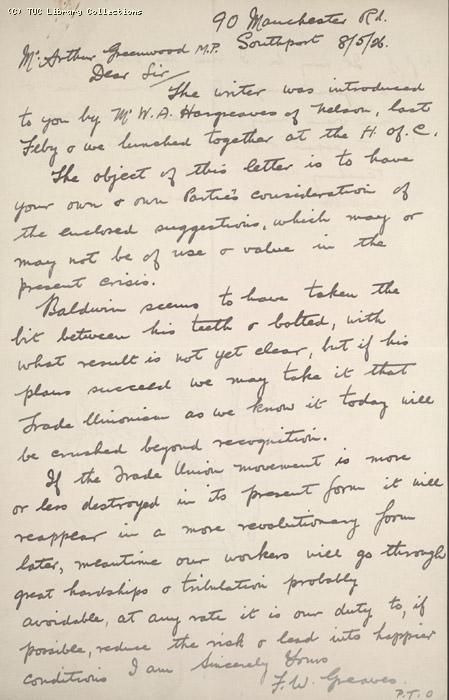 (C) TUC Library Collections
90 Manchester Rd.
Southport 8/5/26.
Mr Arthur Greenwood M.P.
Dear Sir/
The writer was introduced
to you by Mr W.A. Hargreaves of Nelson, last
Feby & we lunched together at the H. of C.
The object of this letter is to have
your own & own Partie's consideration of
the enclosed suggestions, which may or
may not be of use & value in the
present crisis.
Baldwin seems to have taken the
bit between his teeth & bolted, with
what result is not yet clear, but if his
plans succeed we may take it that
Trade Unionism as we know it today will
be crushed beyond recognition.
If the Trade Union movement is more
or less destroyed in its present form it will
reappear in a more revolutionary form
later, meantime our workers will go through
great hardships & tribulation probably
avoidable, at any rate it is our duty to, if
possible, reduce the risk & lead into happier
conditions I am Sincerely Yours
F. W. Greaves.
P.T.O